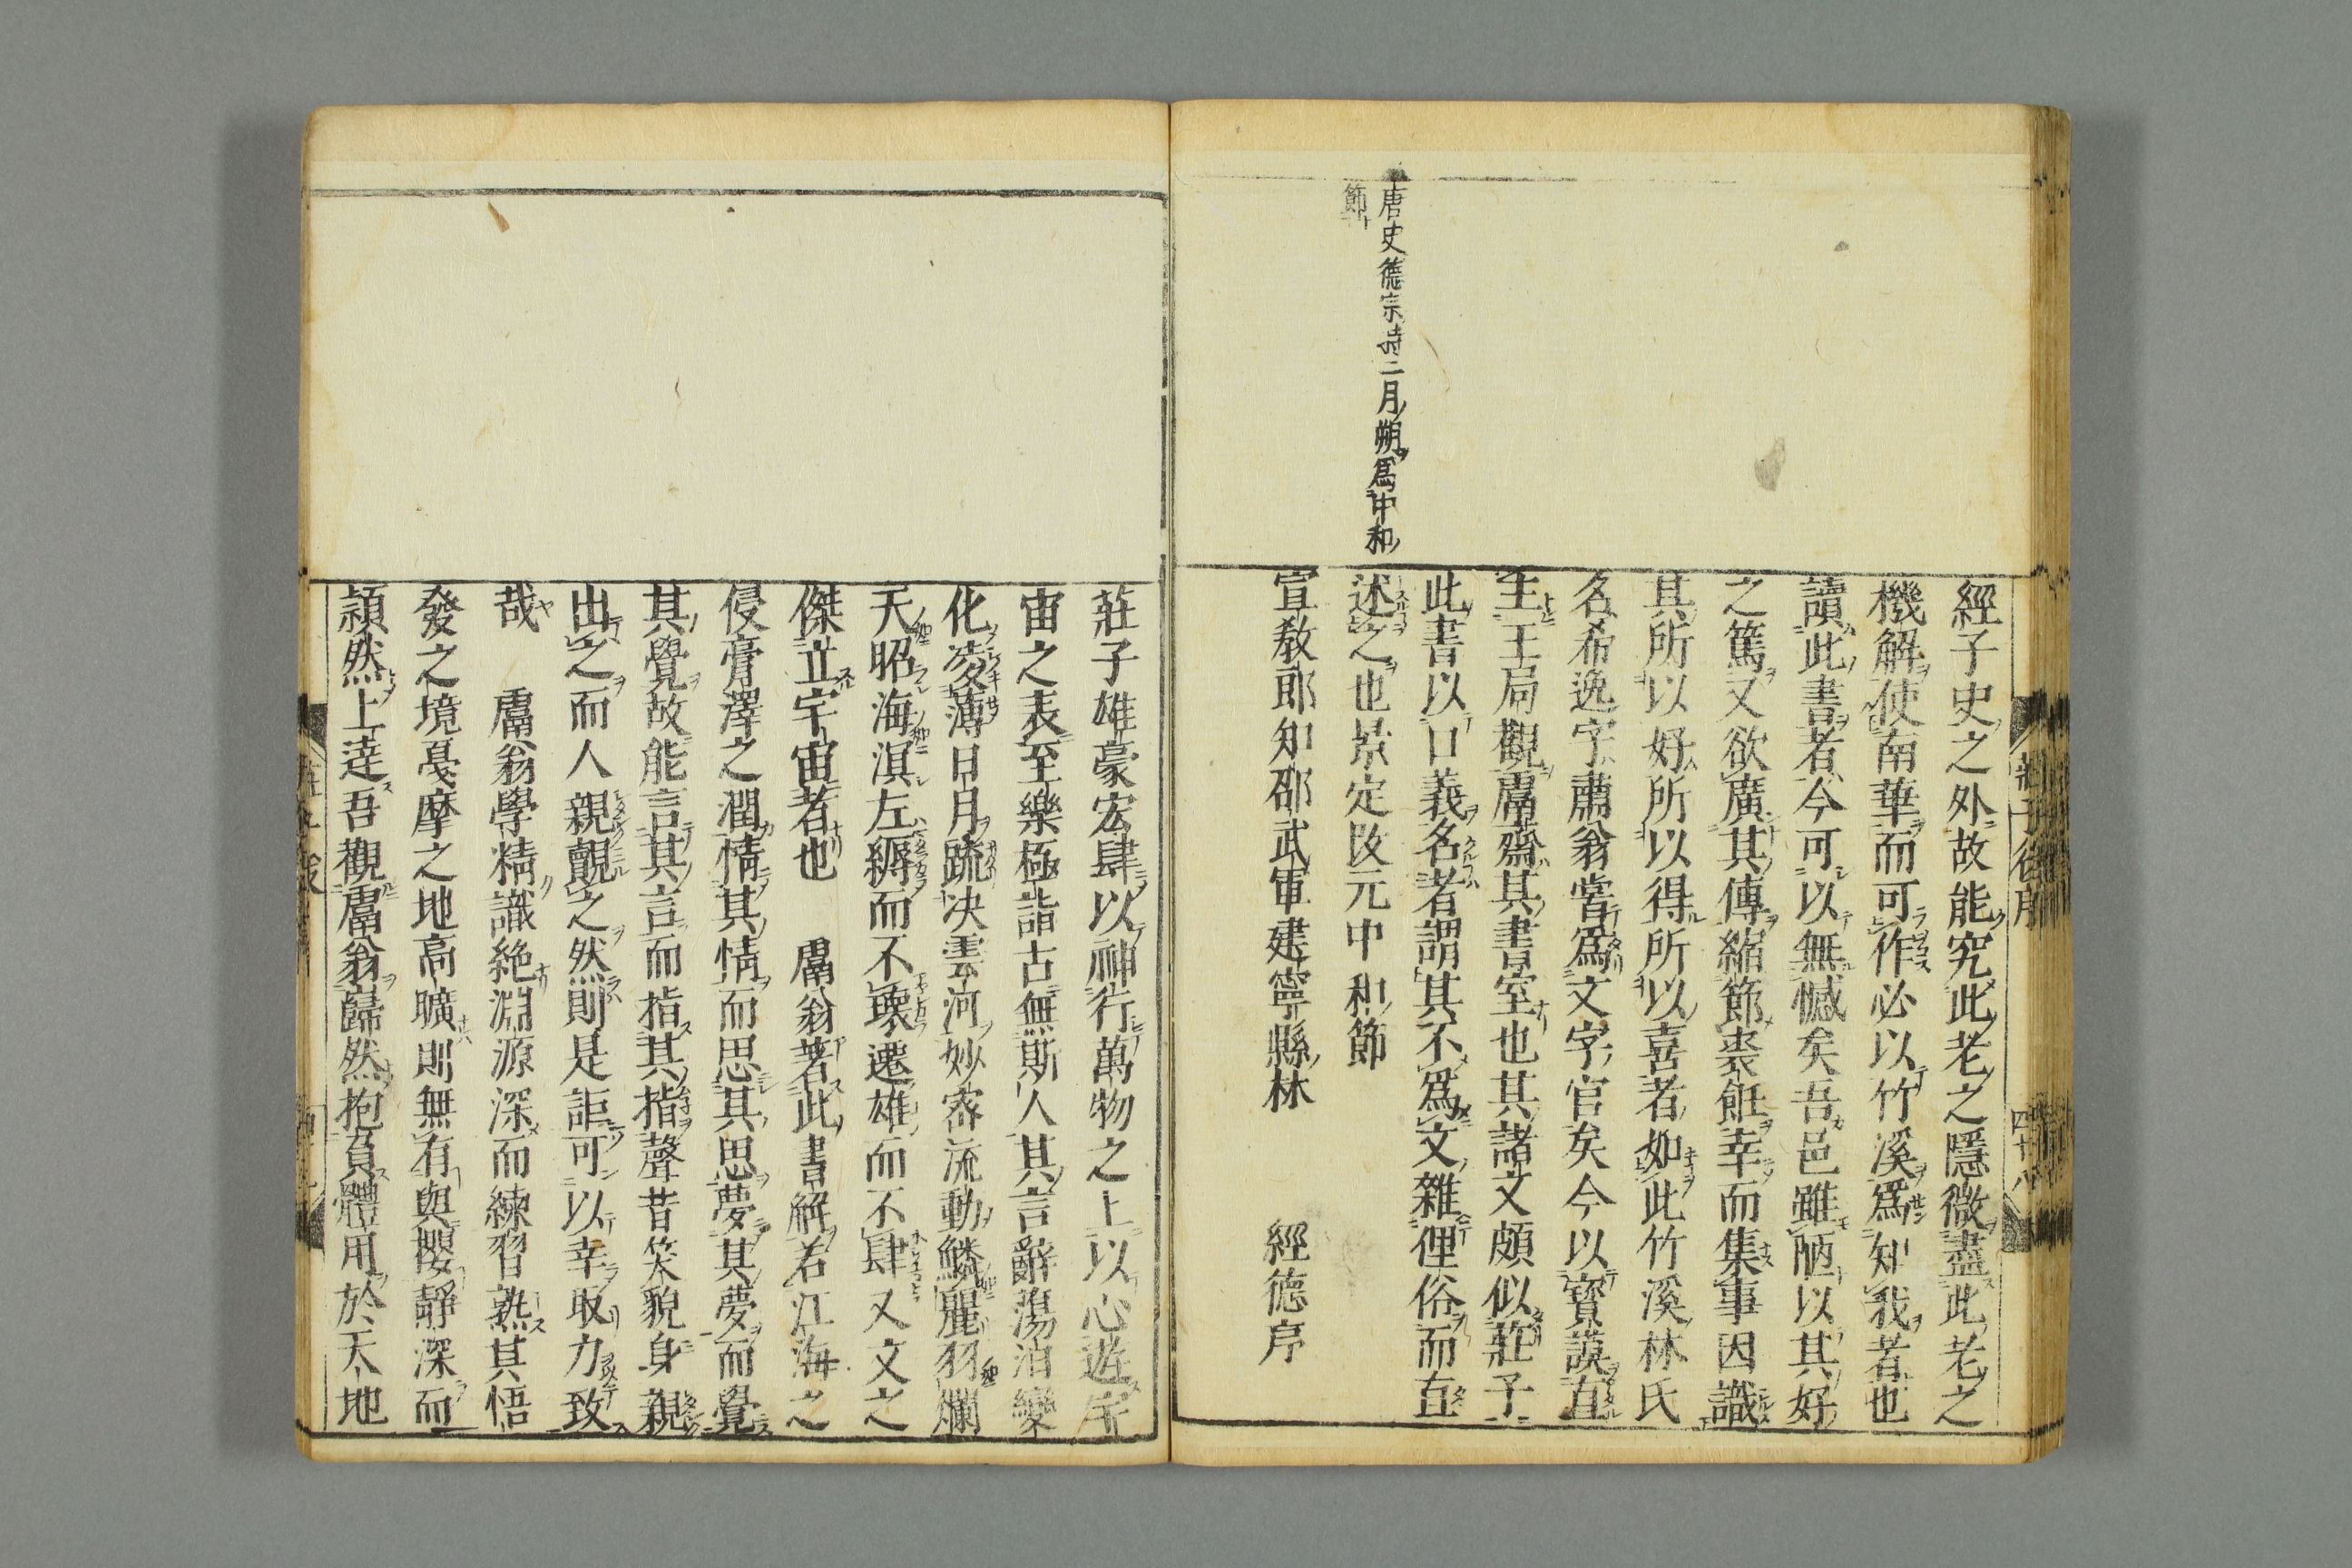 莊子後序
四十八
唐史德宗時二月朔爲中和
節
經子史之外故能究此老之隱微盡此老之
機解使南華而可作必以竹溪爲知我者也
讀此書者今可以無憾矣吾邑雖陋以其好
之篤又欲廣其傳縮節裘飪幸而集事因識
其所以好所以得所以喜者如此竹溪林氏
名希逸字肅翁嘗爲文字官矣今以寶謨直
主玉局觀鬳齋其書室也其諸文頗似莊子
此書以口義名者謂其不爲文雜俚俗而直
述之也景定改元中和節
宣敎郎知邵武軍建寧縣林 經德序
莊子雄豪宏肆以神行萬物之上以心遊宇
宙之表至樂極詣古無斯人其言辭蕩汨變
化凌薄日月疏决雲河妙密流動鱗麗羽爛
天昭海溟左縟而不瓌遷雄而不肆又文之
傑立宇宙者也 鬳翁著此書解若江海之
侵膏澤之潤情其情而思其思夢其夢而覺
其覺故能言其言而指其指聲昔笑貌身親
出之而人親覿之然則是詎可以幸取力致
哉 鬳翁學精識絶淵源深而練習熟其悟
發之境戛摩之地高曠則無有與攖靜深而
頴然上達吾觀鬳翁巋然抱負體用於天地